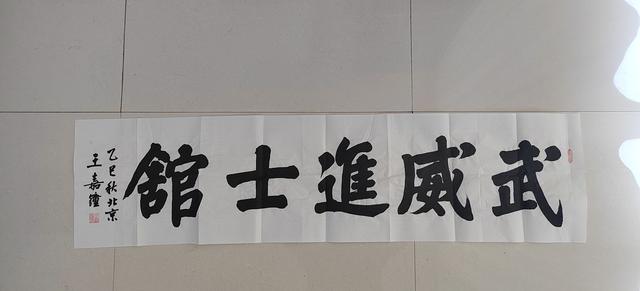 武威進士舘
乙巳秋北京
王嘉